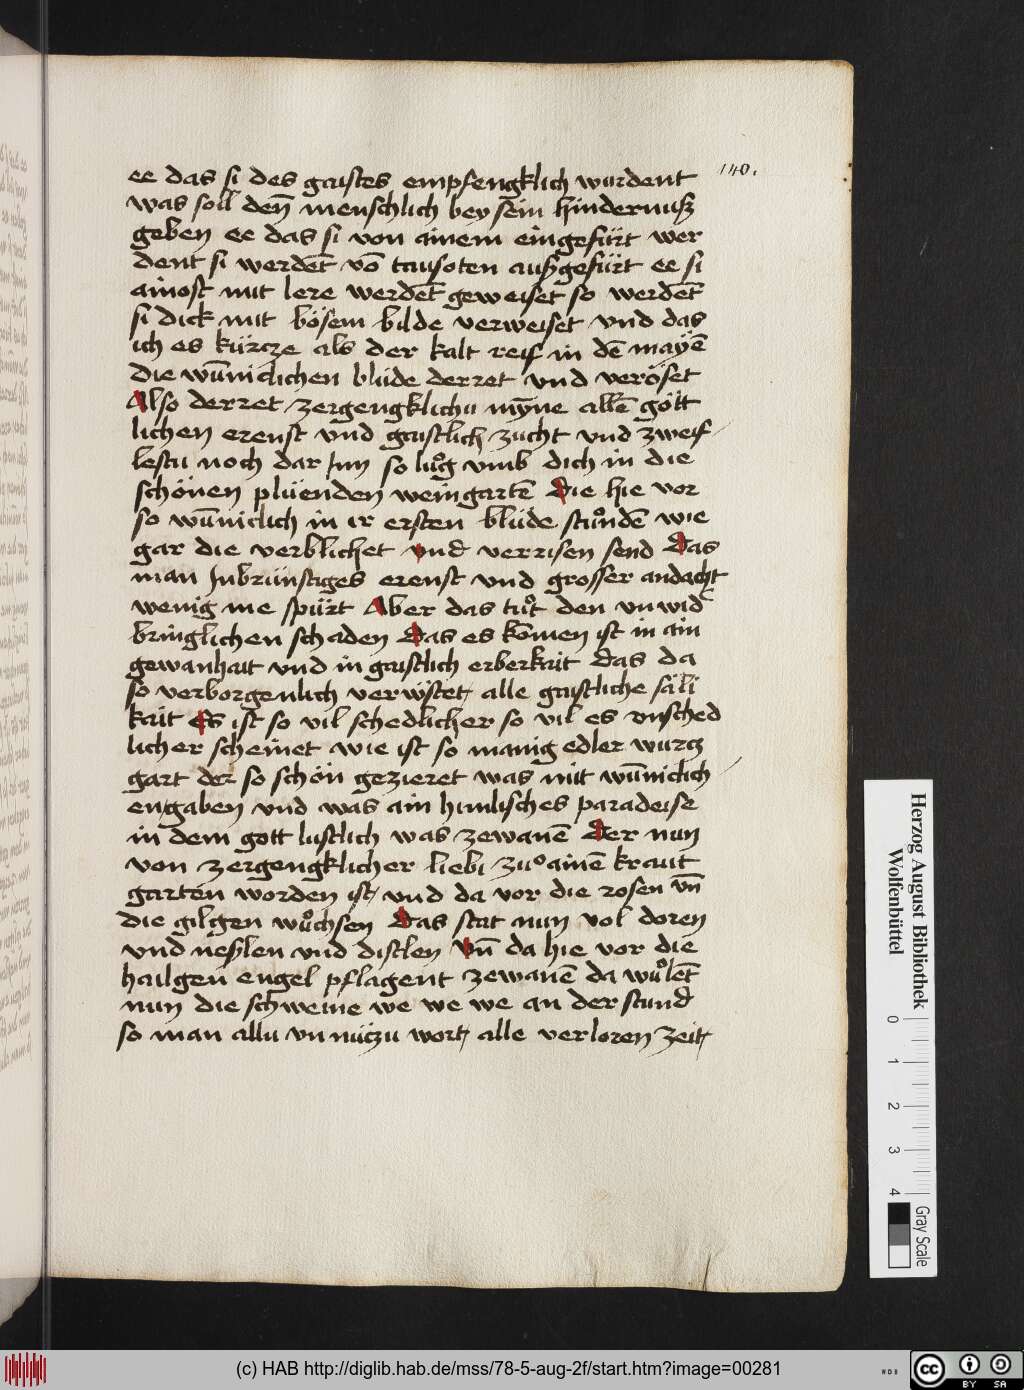 140.
ee das si des gaistes empfengklich wurdent
was soll den̄ menschlich bey sein hindernuß
geben ee das si von ainem eingefürt wer
dent si werdēt vō tausoten außgefürt ee si
ainost mit lere werdēt geweiset so werdēt
si dick mit bösem bilde verweiset vnd das
ich es kürcze als der kalt reif in dē mayē
die wūniclichen blüde derret vnd veröset
Also derret zergengklichu mȳne allē gött
lichen erenst vnd gaistlich zucht vnd zweif
lestu noch dar Jnn so lůg vmb dich in die
schönen plüenden weingartē Die hie vor
so wūniclich in ir ersten blüde stůndē wie
gar die verblichet vnd verrisen send Das
man Jnbrünstiges erenst vnd grosser andacht
wenig me spürt Aber das tůt den vnwid
bringlichen schaden Das es kōmen ist in ain
gewanhait vnd in gaistlich erberkait das da
so verborgenlich verwstet alle gaistliche säli
kait Es ist so vil schedlicher so vil es vnsched
licher scheinet wie ist so manig edler wurcz
gart der so schön gezieret was mit wūniclich
engaben vnd was ain himlisches paradeise
in dem gott lustlich was zewanē Der nun
von zergengklicher liebi zuo ainē kraut
garten worden ist vnd da vor die rosen vn̄
die gilgen wůchsen Das stat nun vol doren
vnd neßlen vnd distlen Vn̄ da hie vor die
hailgen engel pflagent zewanē da wůlēt
nun die schweine we we we an der stund
so man allu vnnüczu wort alle verloren zeit
Herzog August Bibliothek
Wolfenbüttel
0 1 2 3 4
Gray Scale
(c) HAB http://diglib.hab.de/mss/78-5-aug-2f/start.htm?image=00281
WDB
cc BY SA